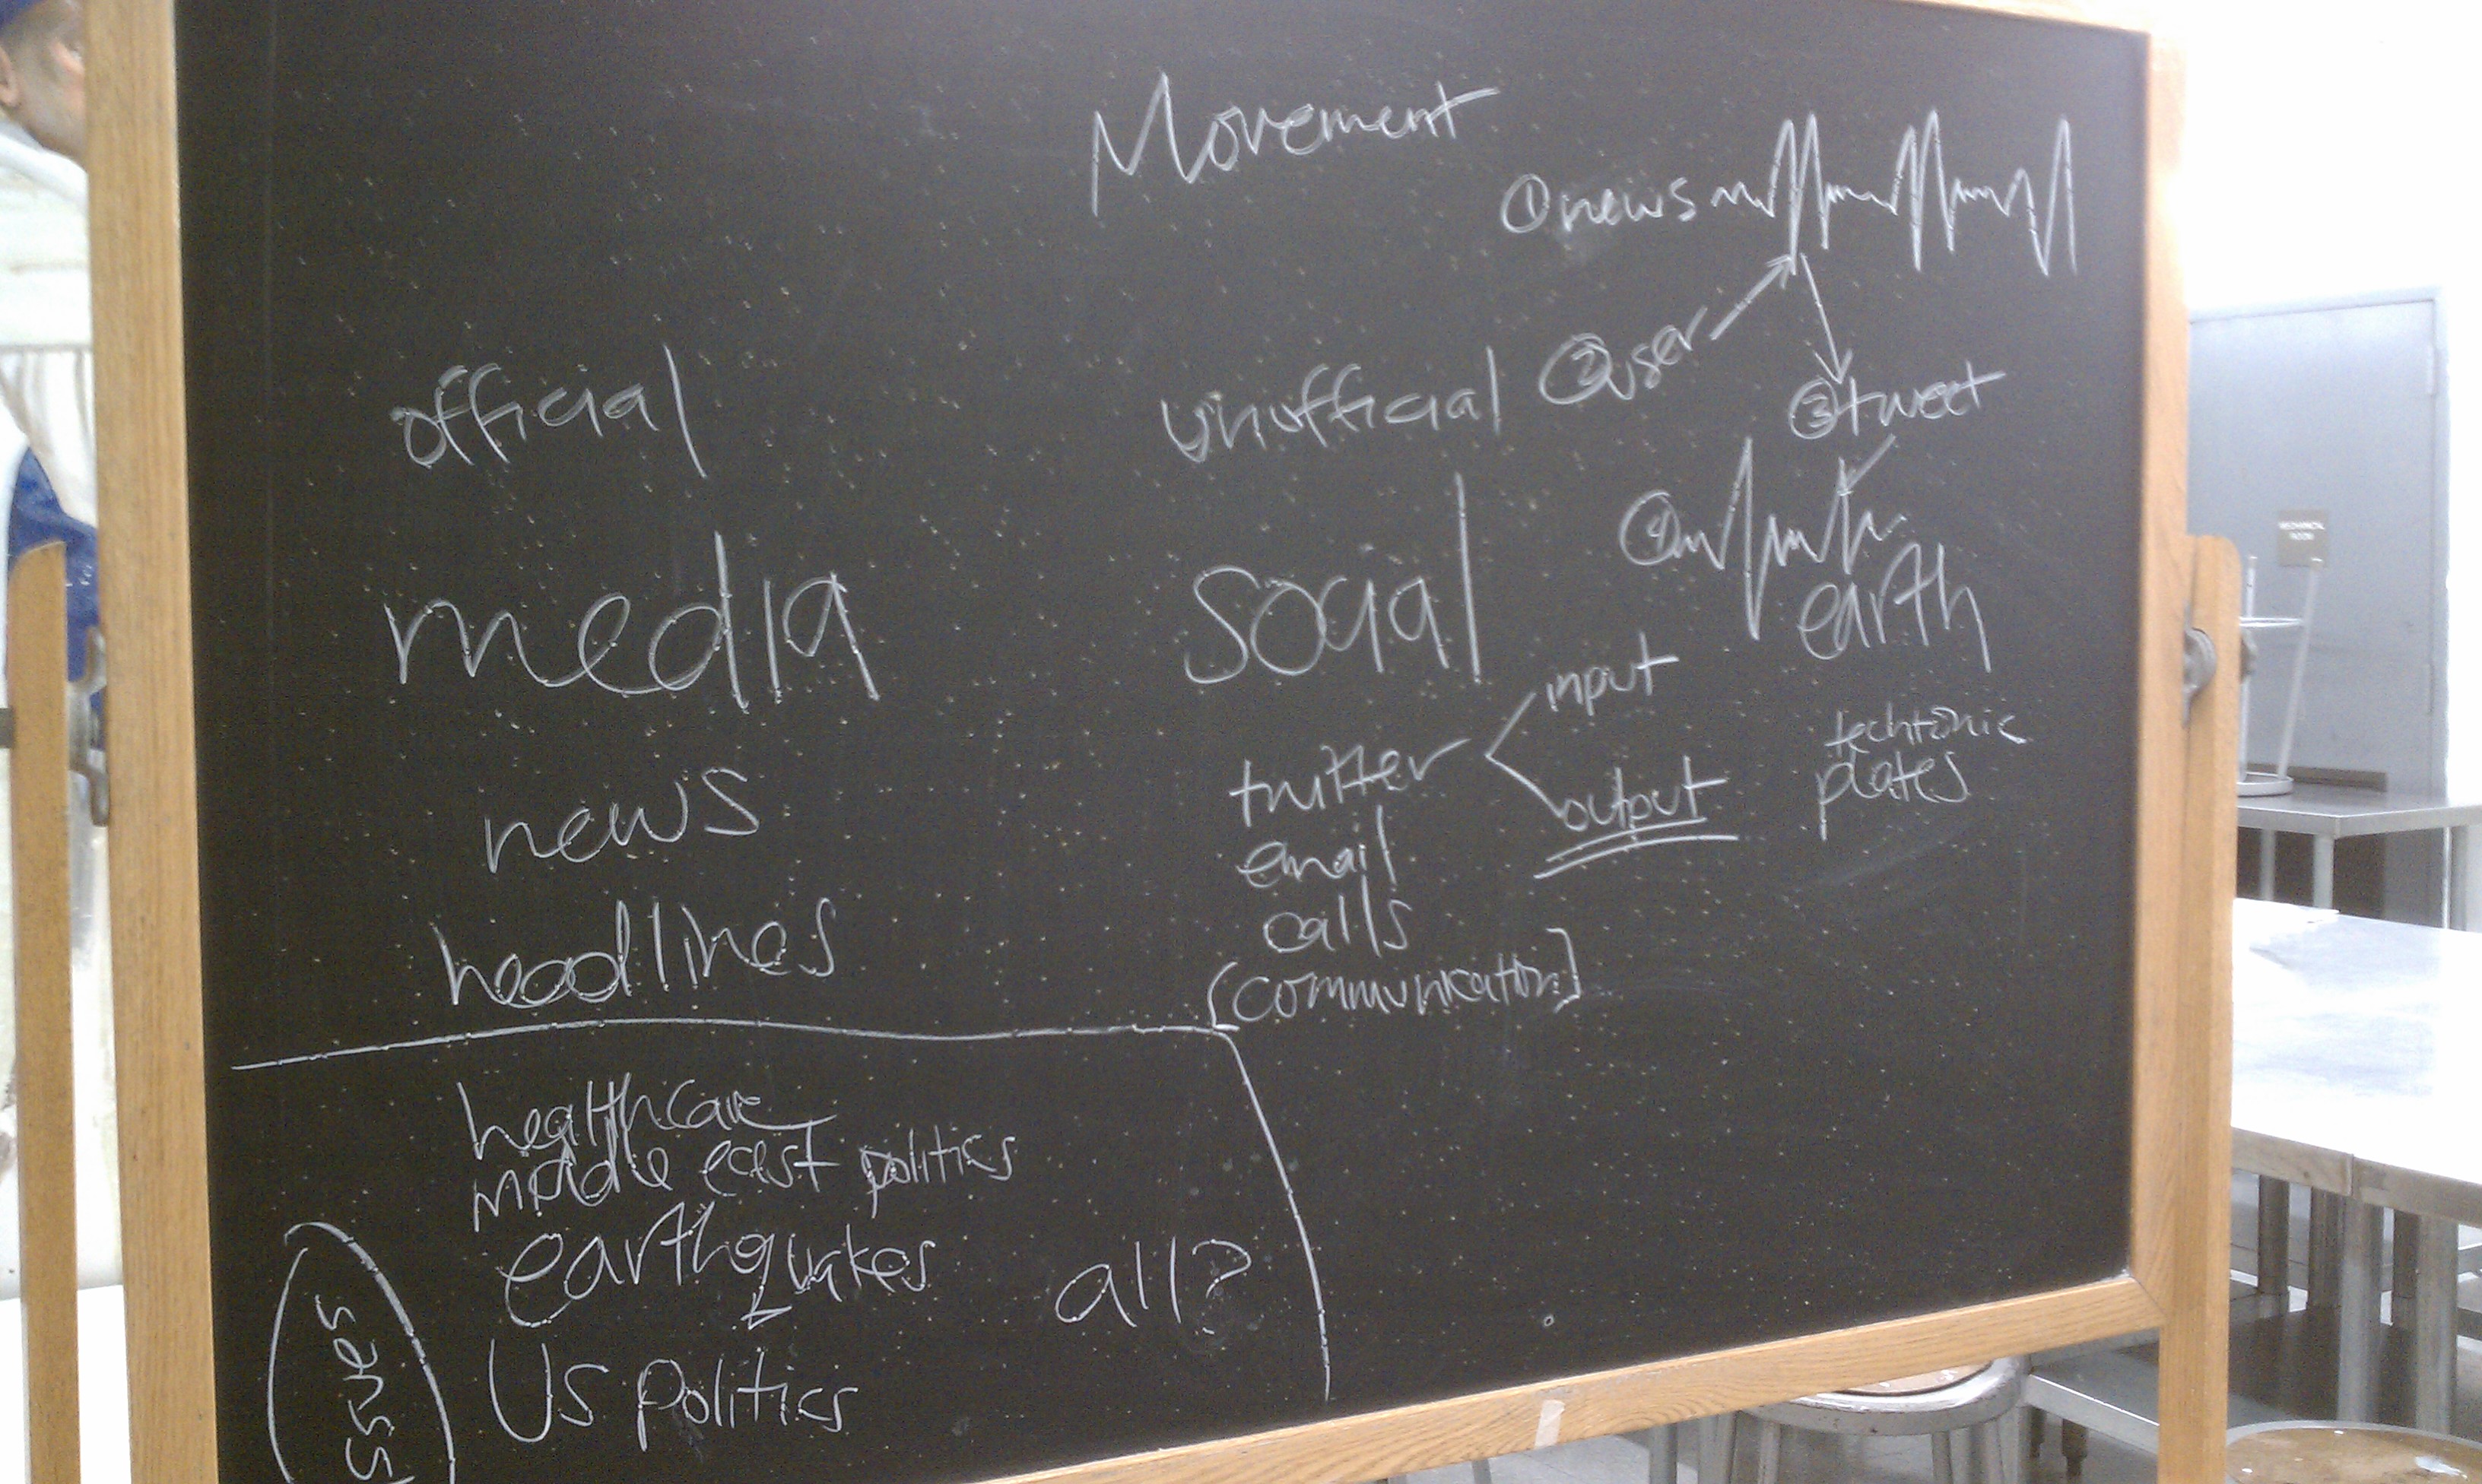 Movement
① news
② user
③ tweet
④
earth
techtonic
plates
official
media
news
headlines
unofficial
social
twitter
input
output
email
calls
[communication]
healthcare
middle east politics
earthquakes
all?
US politics